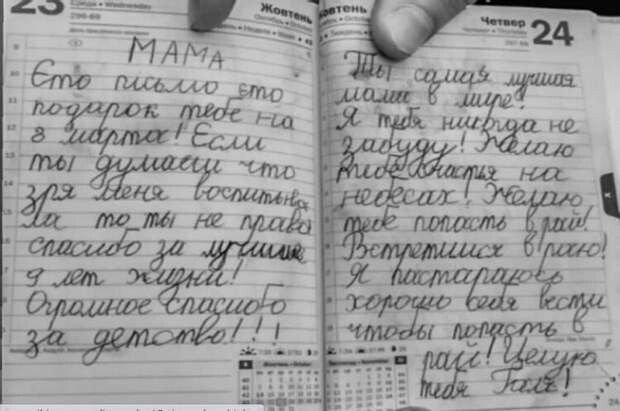 23 Середа • Wednesday
296-69
Жовтень
МАМА
Єто письмо єто
подарок тебе на
8 марта! Если
ты думаеш что
зря меня воспитыва
ла то ты не права
спасибо за лучшие
9 лет жизни!
Огромное спасибо
за детство!!!
Жовтень
Четвер 24
Ты самая лучшая
мама в мире!
Я тебя никогда не
забуду! Желаю
тебе счастья на
небесах! Желаю
тебе попасть в рай!
Встретимся в раю!
Я пастараюсь
хорошо себя вести
чтобы попасть в
рай! Целую
тебя Галя!